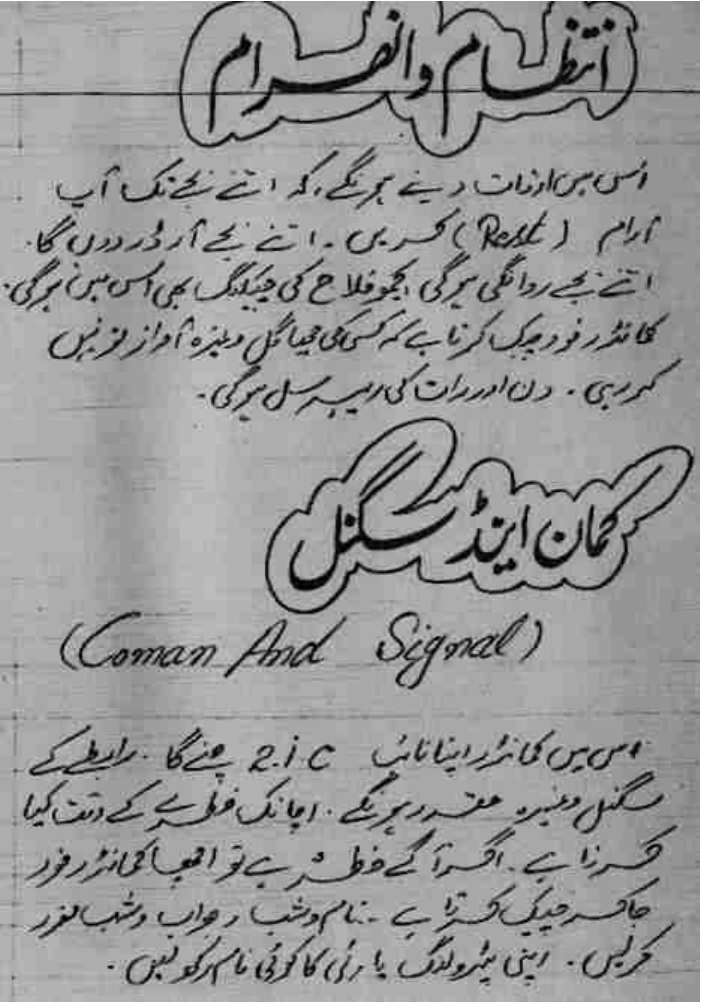 انتظام وانصرام
اس میں اوقات دینے ہونگے، کہ اتنے بجے تک آپ
آرام (Rest) کریں۔ اتنے بجے آرڈر دوں گا۔
اتنے بجے روانگی ہوگی کی چیکنگ بھی اس میں ہوگی۔
کمانڈر خود چیک کرتا ہے کہ کسی کی چھاگل وغیرہ آواز تو نہیں
کر رہی۔ دن اور رات کی ریہرسل ہوگی۔
کمان اینڈ سگنل
(Coman And Signal)
اس میں کمانڈر اپنا نائب 2.i.c چنے گا۔ رابطے کے
سگنل وغیرہ مقرر ہونگے۔ اچانک خطرے کے وقت کیا
کرنا ہے۔ اگر آگے خطرہ ہے تو اچھا کمانڈر خود
جاکر چیک کرتا ہے۔ نام وشب، جواب وشب
کرلیں۔ اپنی پٹرولنگ پارٹی کا کوئی نام رکھ لیں۔